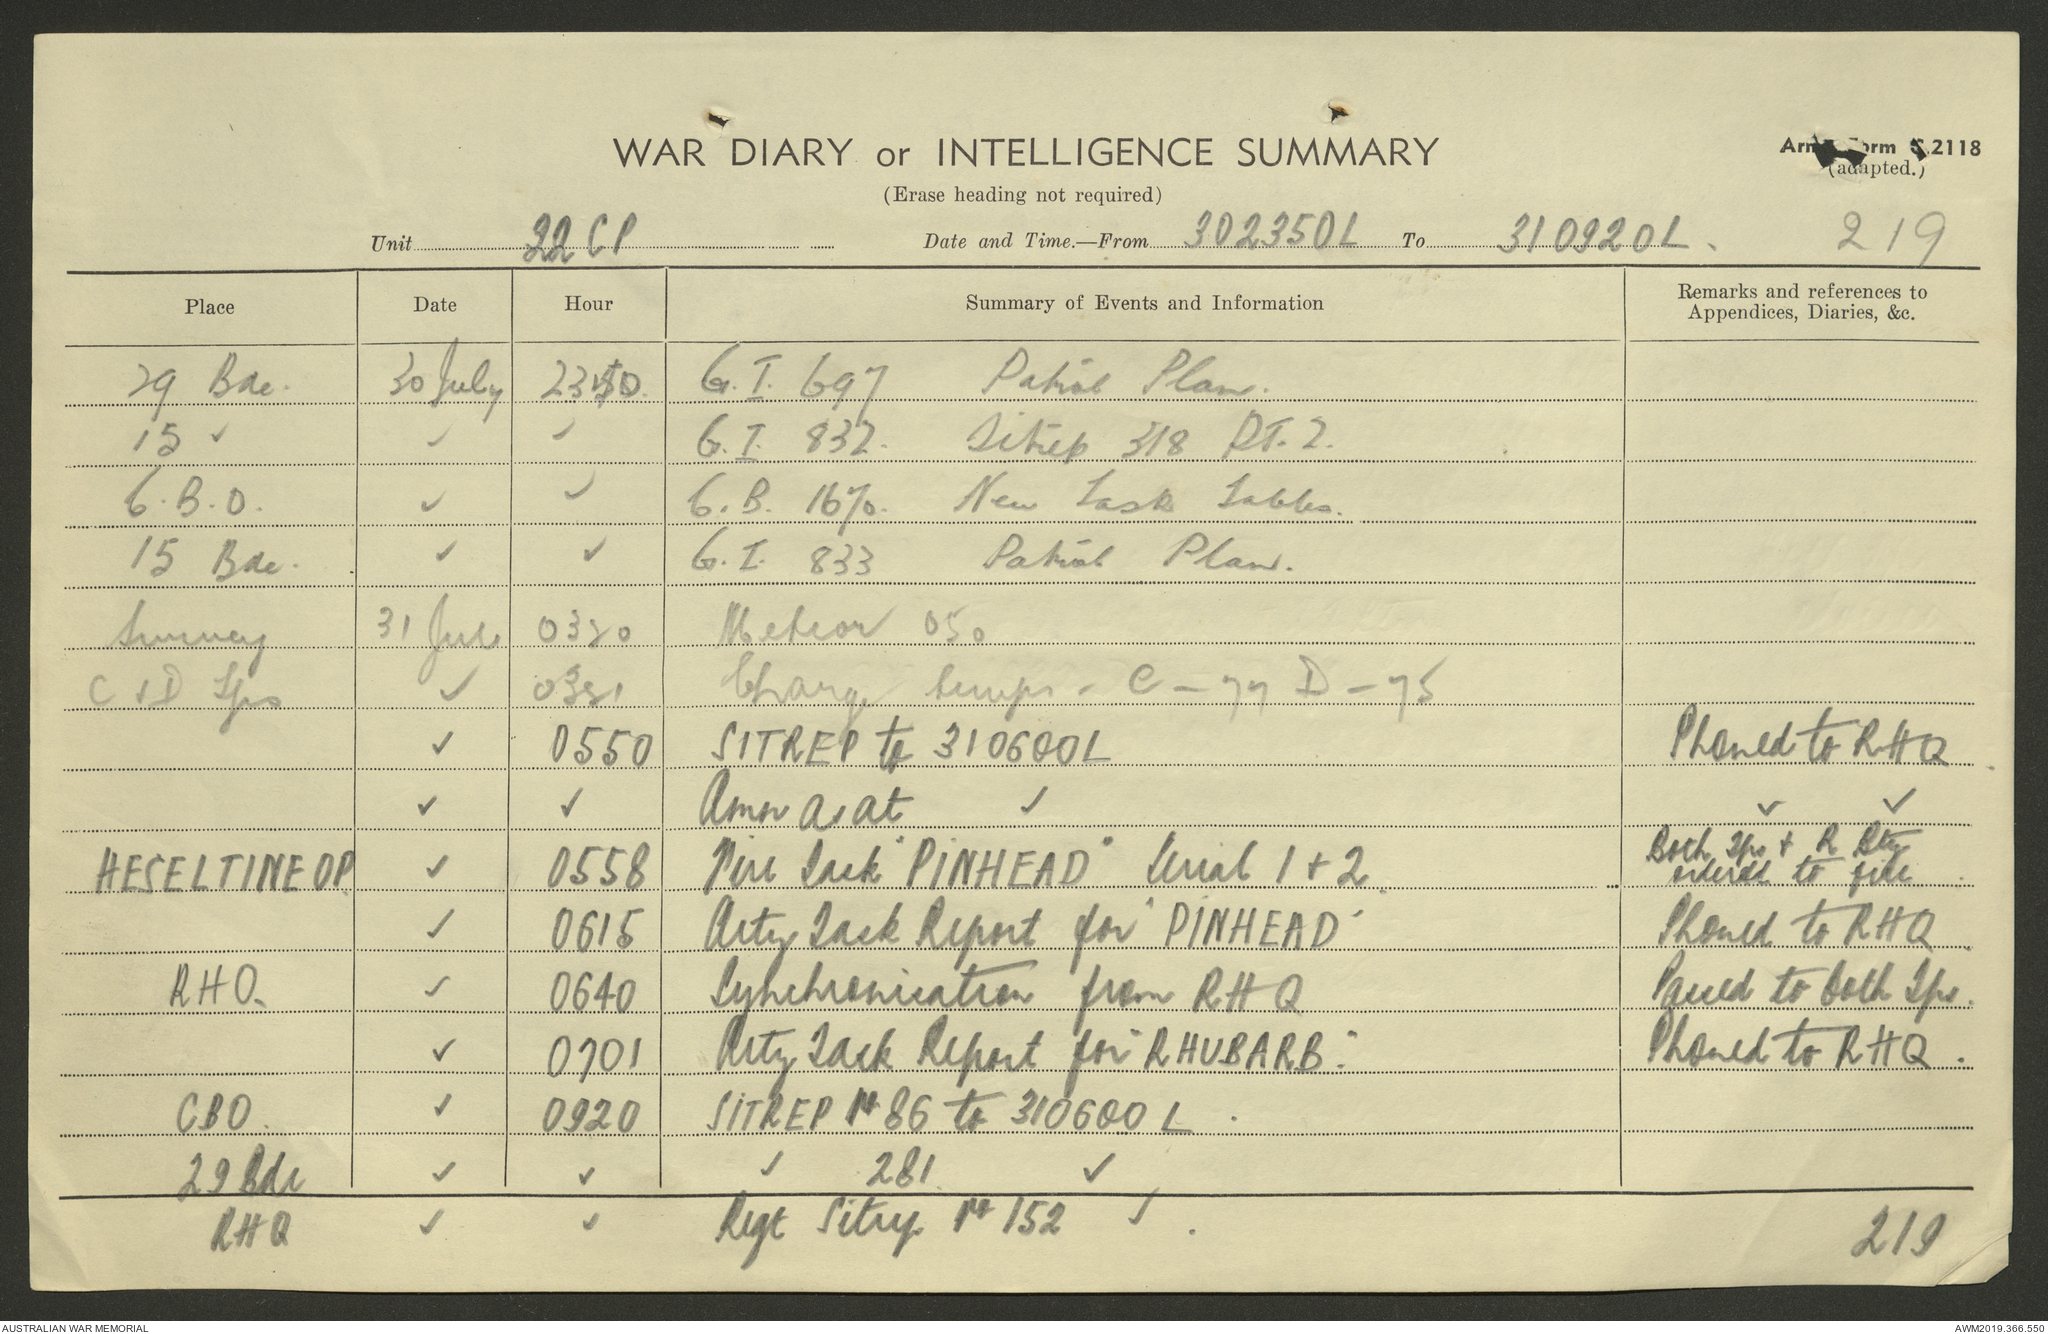 WAR DIARY or INTELLIGENCE SUMMARY
(Erase heading not required)
Army Form C.2118
(adapted.)
Unit 22 CP Date and Time.—From 302350L To 310920L. 219
Place Date Hour Summary of Events and Information Remarks and references to Appendices, Diaries, &c.
29 Bde. 30 July 2350. G.I. 697 Patrol Plan.
15 ✓ ✓ ✓ G.I. 832. Sitrep 318 PT. 2.
C.B.O. ✓ ✓ C.B. 1670. New Task Tables.
15 Bde. ✓ ✓ G.I. 833 Patrol Plan.
Survey 31 Jul 0320 Meteor 050
C & D Tps ✓ 0321 Charge temps. C – 77 D – 75
✓ 0550 SITREP to 310600L Phoned to RHQ
✓ ✓ Ammn as at ✓ ✓ ✓
HESELTINE OP ✓ 0558 Fire Task "PINHEAD" Serial 1 + 2. Both Tps + R Bty ordered to fire
✓ 0615 Arty Task Report for 'PINHEAD' Phoned to RHQ
RHQ. ✓ 0640 Synchronisation from RHQ Passed to both Tps.
✓ 0701 Arty Task Report for "RHUBARB". Phoned to RHQ.
CBO. ✓ 0920 SITREP No 86 to 310600L.
29 Bde ✓ ✓ ✓ 281 ✓
RHQ ✓ ✓ Regt Sitrep No 152 ✓.
219
AUSTRALIAN WAR MEMORIAL
AWM2019.366.550